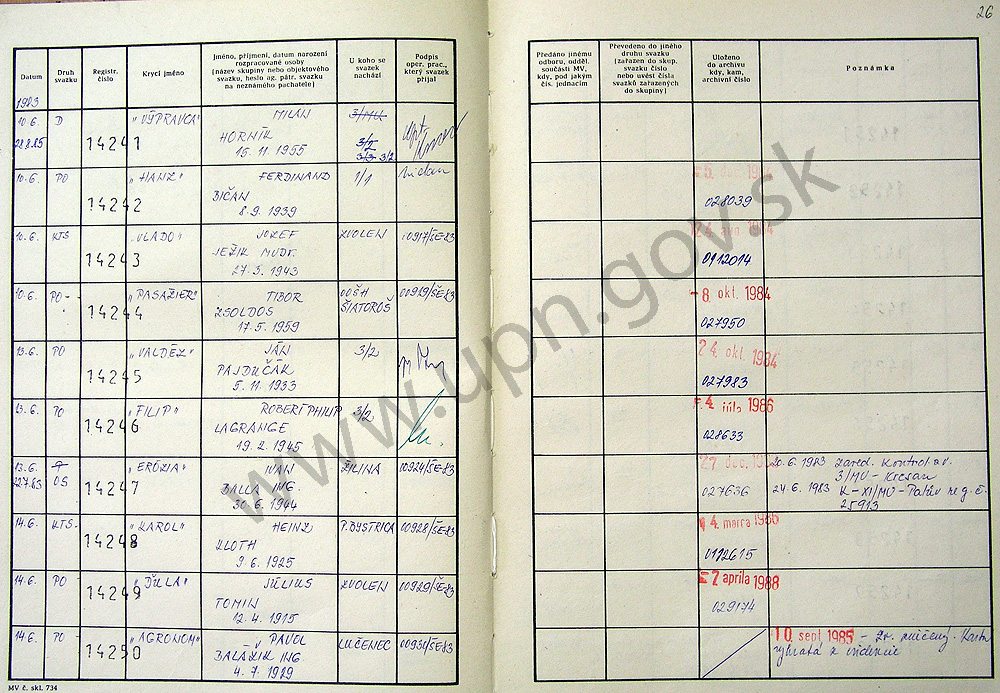 26
Datum
Druh svazku
Registr. číslo
Krycí jméno
Jméno, příjmení, datum narození rozpracované osoby (název skupiny nebo objektového svazku, heslo ag. pátr. svazku na neznámého pachatele)
U koho se svazek nachází
Podpis oper. prac., který svazek přijal
Předáno jinému odboru, odděl. součásti MV, kdy, pod jakým čís. jednacím
Převedeno do jiného druhu svazku (zařazen do skup. svazku číslo nebo uvést čísla svazků zařazených do skupiny)
Uloženo do archivu kdy, kam, archivní číslo
Poznámka
1983
10.6. D 14241 "VÝPRAVCA" MILAN
28.8.85 HORNÍK 3/2
15.11.1955 3/2
10.6. PO 14242 "HANZ" FERDINAND 1/1
BIČAN 028039
8.9.1939
10.6. KTS 14243 "VLADO" JOZEF ZVOLEN 00917/ŠE-83
JEŽIK MUDr. 0112014
27.3.1943
10.6. PO 14244 "PASAŽIER" TIBOR OOŠH ŠIATOROŠ 00919/ŠE-83 -8. okt. 1984
ZSOLDOS 027950
17.5.1959
13.6. PO 14245 "VALDÉZ" JÁN 3/2 24. okt. 1984
PAJDUČÁK 027983
5.11.1933
13.6. PO 14246 "FILIP" ROBERT PHILIP 3/2 4. júla 1986
LAGRANGE 028633
19.2.1945
13.6. 14247 "ERÓZIA" IVAN ŽILINA 00924/ŠE-83 20.6.1983 zaved. kontrol. zv.
22.7.83 OS BALLA ING. 027636 3/MV - Kresan
30.6.1944 24.6.1983 K-XI/MV-
25913
14.6. KTS. 14248 "KAROL" HEINZ P. BYSTRICA 00928/ŠE-83 4. marca 1986
KLOTH 0112615
9.6.1925
14.6. PO 14249 "ĎULA" JÚLIUS ZVOLEN 00929/ŠE-83 7 apríla 1988
TOMIN 029174
12.4.1915
14.6. PO 14250 "AGRONOM" PAVOL LUČENEC 00930/ŠE-83 10. sept 1985 - Zv. zničený. Karta
BALÁŽIK ING vybratá z evidencie
4.7.1929
MV č. skl. 734
www.upn.gov.sk